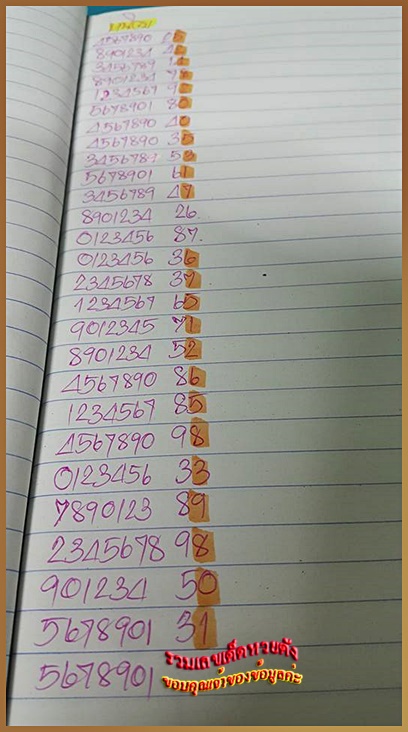 4567890
8901234
3456789 14
8901234 78
1234567
5678901 80
4567890 40
4567890 35
3456789 53
5678901 61
3456789 47
8901234 26.
0123456 87.
0123456 36
2345678 37
1234567 65
9012345 71
8901234 52
4567890 86
1234567 85
4567890 98
0123456 33
7890123 89
2345678 98
901234 50
5678901 31
5678901
รวมเลขเด็ดหวยดัง
ขอบคุณเจ้าของข้อมูลค่ะ